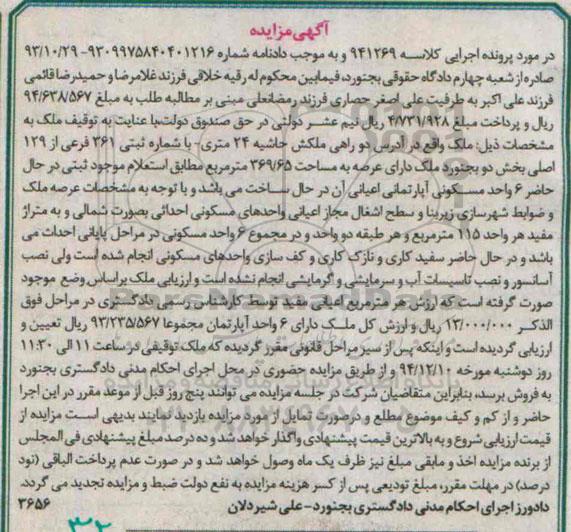 آگهی مزایده
در مورد پرونده اجرایی کلاسه ۹۴۱۲۶۹ و به موجب دادنامه شماره ۹۳۰۹۹۷۵۸۴۰۴۰۱۲۱۶-۹۳/۱۰/۲۹
صادره از شعبه چهارم دادگاه حقوقی بجنورد، فیمابین محکوم له رقیه خلاقی فرزند غلامرضا و حمیدرضا قائمی
فرزند علی اکبر به طرفیت علی اصغر حصاری فرزند رمضانعلی مبنی بر مطالبه طلب به مبلغ ۹۴/۶۳۸/۵۶۷
ریال و پرداخت مبلغ ۴/۷۳۱/۹۲۸ ریال نیم عشر دولتی در حق صندوق دولت، با عنایت به توقیف ملک به
مشخصات ذیل: ملک واقع در آدرس دو راهی ملکش حاشیه ۲۴ متری- با شماره ثبتی ۳۶۱ فرعی از ۱۲۹
اصلی بخش دو بجنورد ملک دارای عرصه به مساحت ۳۶۹/۶۵ مترمربع مطابق استعلام موجود ثبتی در حال
حاضر ۶ واحد مسکونی آپارتمانی اعیانی آن در حال ساخت می باشد و با توجه به مشخصات عرصه ملک
و ضوابط شهرسازی زیربنا و سطح اشغال مجاز اعیانی واحدهای مسکونی احداثی بصورت شمالی و به متراژ
مفید هر واحد ۱۱۵ مترمربع و هر طبقه دو واحد و در مجموع ۶ واحد مسکونی در مراحل پایانی احداث می
باشد و در حال حاضر سفید کاری و نازک کاری و کف سازی واحدهای مسکونی انجام شده است ولی نصب
آسانسور و نصب تاسیسات آب و سرمایشی و گرمایشی انجام نشده است و ارزیابی ملک براساس وضع موجود
صورت گرفته است که ارزش هر مترمربع اعیانی مفید توسط کارشناس رسمی دادگستری در مراحل فوق
الذکر ۱۳/۰۰۰/۰۰۰ ریال و ارزش کل ملک دارای ۶ واحد آپارتمان مجموعا ۹۳/۲۳۵/۵۶۷ ریال تعیین و
ارزیابی گردیده است و اینکه پس از سیر مراحل قانونی مقرر گردیده که ملک توقیفی در ساعت ۱۱ الی ۱۱:۳۰
روز دوشنبه مورخه ۹۴/۱۲/۱۰ و از طریق مزایده حضوری در محل اجرای احکام مدنی دادگستری بجنورد
به فروش برسد، بنابراین متقاضیان شرکت در جلسه مزایده می توانند پنج روز قبل از موعد مقرر در این اجرا
حاضر و از کم و کیف موضوع مطلع و درصورت تمایل از مورد مزایده بازدید نمایند بدیهی است مزایده از
قیمت ارزیابی شروع و به بالاترین قیمت پیشنهادی واگذار خواهد شد و ده درصد مبلغ پیشنهادی فی المجلس
از برنده مزایده اخذ و مابقی مبلغ نیز ظرف یک ماه وصول خواهد شد و در صورت عدم پرداخت الباقی (نود
درصد) در مهلت مقرر، مبلغ تودیعی پس از کسر هزینه مزایده به نفع دولت ضبط و مزایده تجدید می گردد.
دادورز اجرای احکام مدنی دادگستری بجنورد- علی شیردلان ۳۶۵۶
۳۲